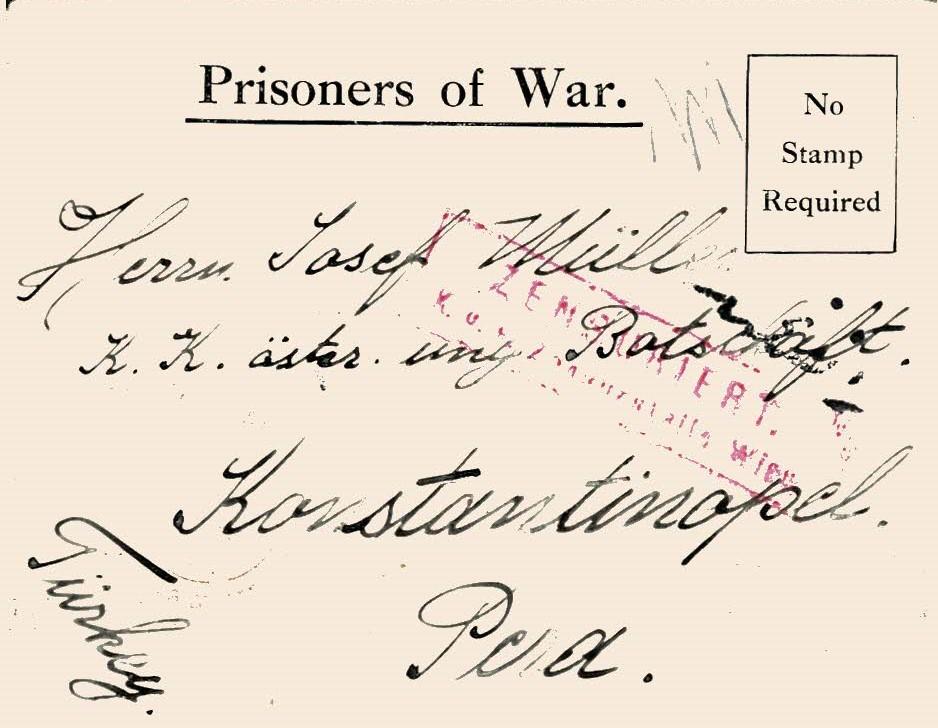 Prisoners of War.
No
Stamp
Required
Herrn Josef Müller
K. K. öster. ung. Botschaft.
ZENSURIERT.
K. u. k. Wien
Konstantinopel.
Pera.
Türkey.